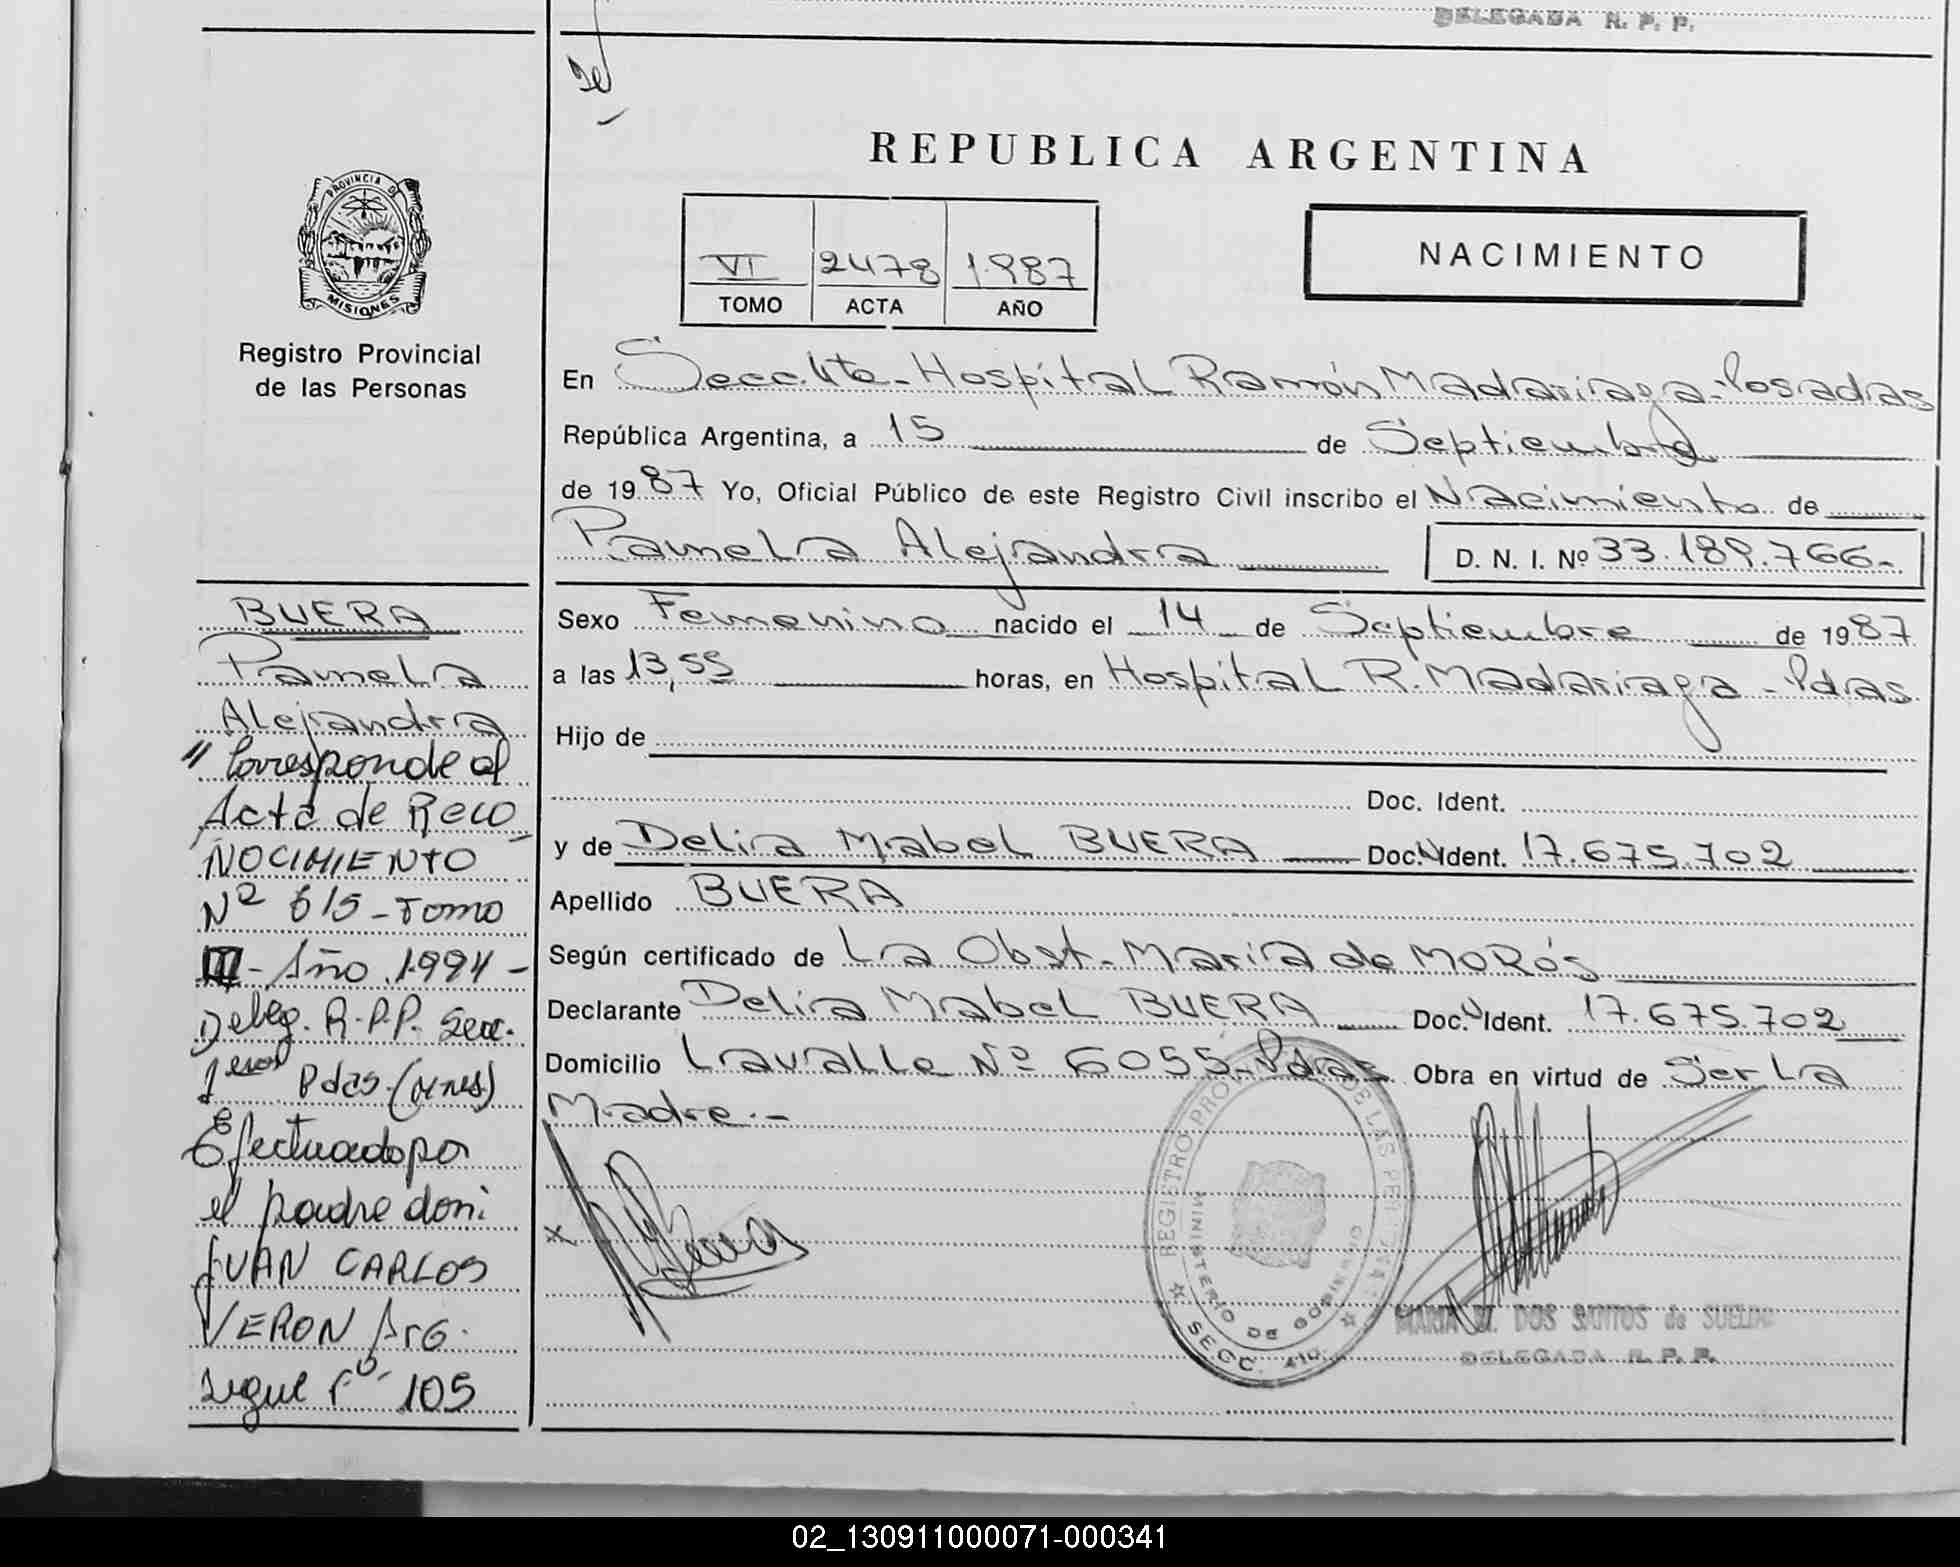 DELEGADA R. P. P.
REPUBLICA ARGENTINA
PROVINCIA DE
MISIONES
Registro Provincial
de las Personas
VI 2478 1987
TOMO ACTA AÑO
NACIMIENTO
En Secc. 4ta - Hospital Ramón Madariaga - Posadas
República Argentina, a 15 de Septiembre
de 1987 Yo, Oficial Público de este Registro Civil inscribo el Nacimiento de
Pamela Alejandra D. N. I. Nº 33.189.766-
Sexo Femenino nacido el 14 de Septiembre de 1987
a las 13,55 horas, en Hospital R. Madariaga - Pdas.
Hijo de
Doc. Ident.
y de Delia Mabel BUERA Doc. Ident. 17.675.702
Apellido BUERA
Según certificado de La Obst. Maria de MORós
Declarante Delia Mabel BUERA Doc. Ident. 17.675.702
Domicilio Lavalle Nº 6055 - Pdas Obra en virtud de Ser La
Madre.-
BUERA
Pamela
Alejandra
" Corresponde al
Acta de Reco
NOCIMIENTO
Nº 615 - Tomo
III - Año 1994 -
Deleg. R.P.P. Secc.
1era Pdas. (Mnes)
Efectuado por
el padre don:
JUAN CARLOS
VERON ArG.
sigue Fº 105
REGISTRO PROV. DE LAS PERSONAS
MINISTERIO DE GOBIERNO
SECC. 4ta
MARIA M. DOS SANTOS de SUELDO
DELEGADA R. P. P.
02_130911000071-000341